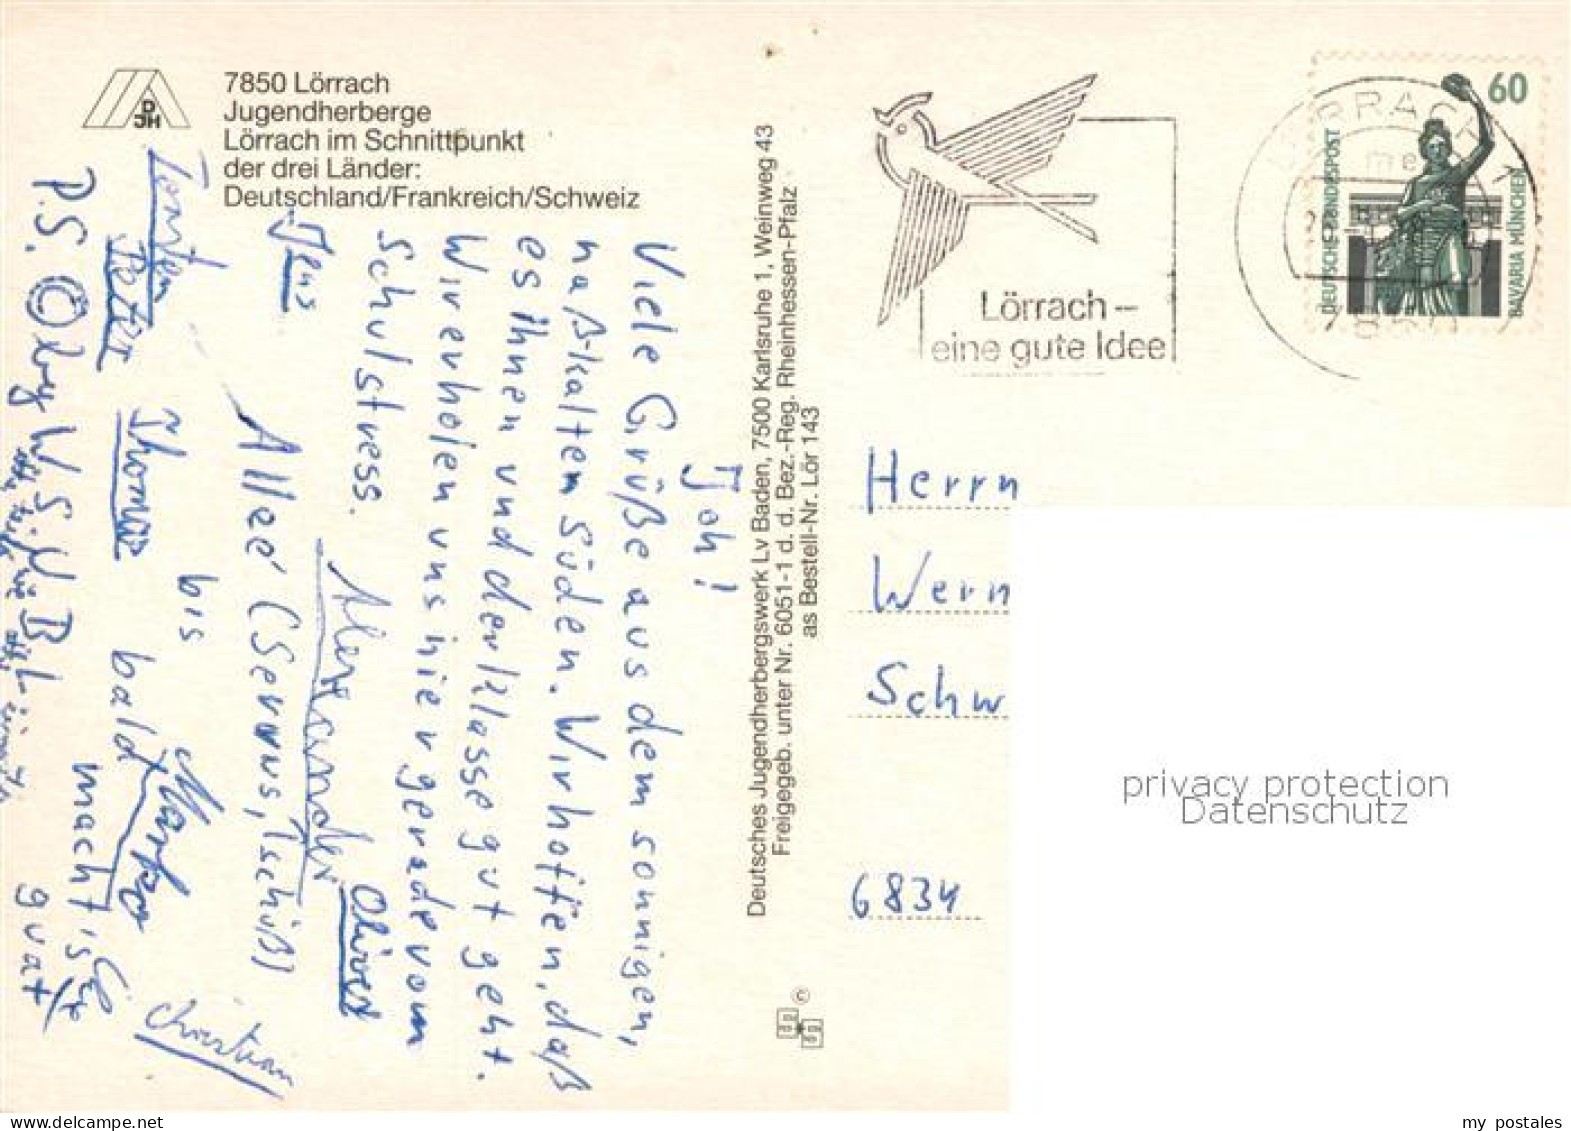 7850 Lörrach
Jugendherberge
Lörrach im Schnittpunkt
der drei Länder:
Deutschland/Frankreich/Schweiz
DJH
Joh!
Viele Grüße aus dem sonnigen,
naß-kalten Süden. Wir hoffen, daß
es ihnen und der Klasse gut geht.
Wir erholen uns hier gerade vom
Schulstress.
Jens
Alexander
Oliver
Allee (Servus, Tschüß)
bis bald
Torsten
Peter
Thomas
Markus
Christian
P.S.
macht's
guat
Deutsches Jugendherbergswerk Lv Baden, 7500 Karlsruhe 1, Weinweg 43
Freigegeb. unter Nr. 6051-1 d. d. Bez.-Reg. Rheinhessen-Pfalz
as Bestell-Nr. Lör 143
©
Lörrach –
eine gute Idee
LÖRRACH 1
60
DEUTSCHE BUNDESPOST
BAVARIA MÜNCHEN
Herrn
Wern
Schw
6834
privacy protection
Datenschutz
my_postales